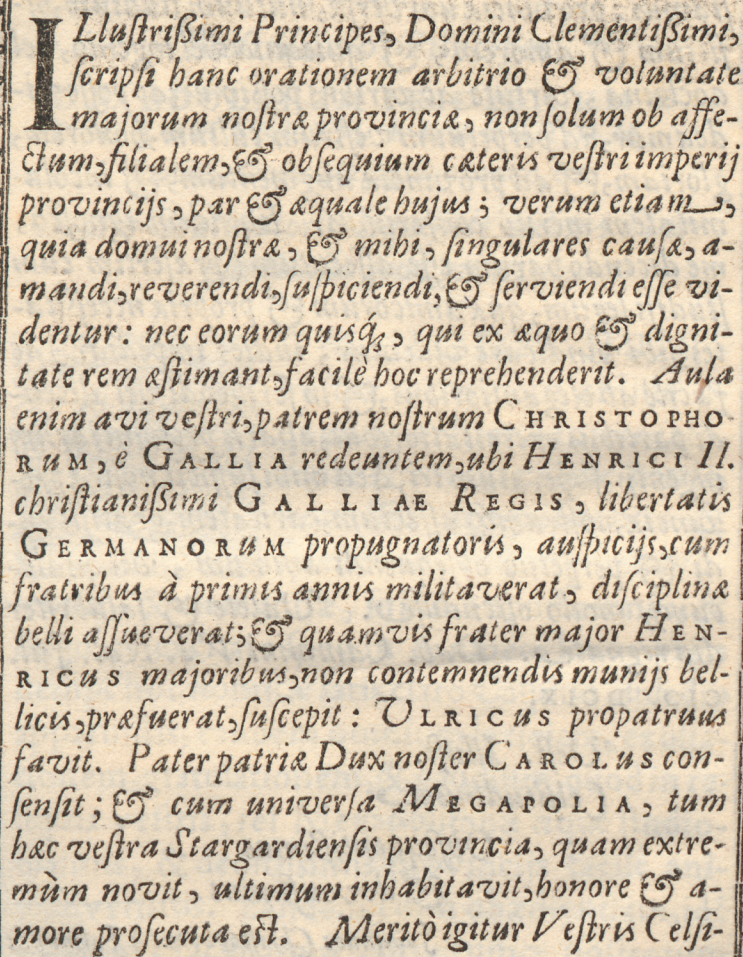 ILluſtrißimi Principes, Domini Clementißimi,
ſcripſi hanc orationem arbitrio & voluntate
majorum noſtræ provinciæ, non ſolum ob affe-
ctum, filialem, & obſequium cæteris veſtri imperij
provincijs, par & æquale hujus; verum etiam,
quia domui noſtræ, & mihi, ſingulares cauſæ, a-
mandi, reverendi, ſuſpiciendi, & ſerviendi eſſe vi-
dentur: nec eorum quisq́;, qui ex æquo & digni-
tate rem æſtimant, facilè hoc reprehenderit. Aula
enim avi veſtri, patrem noſtrum CHRISTOPHO-
RUM, è GALLIA redeuntem, ubi HENRICI II.
chriſtianißimi GALLIAE REGIS, libertatis
GERMANORUM propugnatoris, auſpicijs, cum
fratribus à primis annis militaverat, diſciplinæ
belli aſſueverat; & quamvis frater major HEN-
RICUS majoribus, non contemnendis munijs bel-
licis, præfuerat, ſuſcepit: ULRICUS propatruus
favit. Pater patriæ Dux noſter CAROLUS con-
ſenſit; & cum univerſa MEGAPOLIA, tum
hæc veſtra Stargardienſis provincia, quam extre-
mùm novit, ultimum inhabitavit, honore & a-
more proſecuta eſt. Meritò igitur Veſtris Celſi-